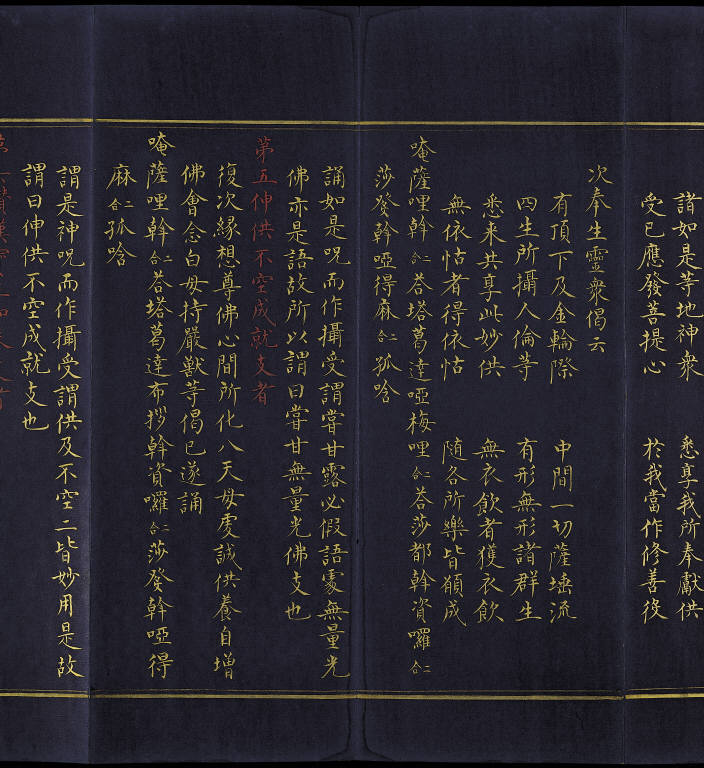 諸如是等地神衆 悉享我所奉獻供
受已應發菩提心 於我當作修善役
次奉生靈衆偈云
有頂下及金輪際 中間一切薩埵流
四生所攝人倫等 有形無形諸群生
悉来共享此妙供 無衣飲者獲衣飲
無依怙者得依怙 隨各所樂皆願成
唵薩哩斡二合荅塔葛達啞梅哩二合荅莎都斡資囉二合
莎癹斡啞得麻二合孤唅
誦如是呪而作攝受謂甞甘露必假語處無量光
佛亦是語故所以謂曰甞甘無量光佛支也
第五伸供不空成就支者
復次緣想尊佛心間所化八天母虔誠供養自增
佛會念白母持嚴獸等偈已遂誦
唵薩哩斡二合荅塔葛達布拶斡資囉二合莎癹斡啞得
麻二合孤唅
謂是神呪而作攝受謂供及不空二皆妙用是故
謂曰伸供不空成就支也